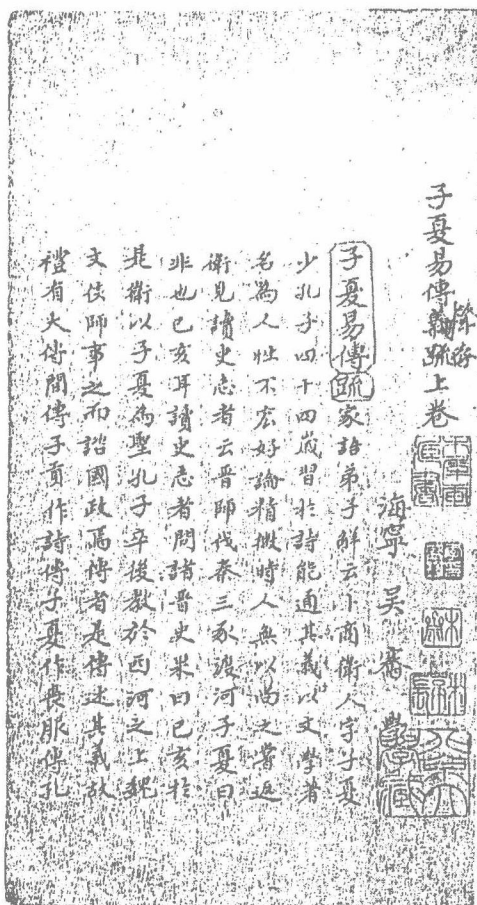 子夏易傳義疏上卷
海寧 吳騫 學
子夏易傳疏家語弟子解云卜商衛人字子夏
少孔子四十四歲習於詩能通其義以文學著
名為人性不宏好論精微時人無以尚之嘗返
衛見讀史志者云晉師伐秦三豕渡河子夏曰
非也己亥耳讀史志者問諸晉史果曰己亥於
是衛以子夏為聖孔子卒後教於西河之上魏
文侯師事之而諮國政焉傳者是傳述其義故
禮有大傳間傳子貢作詩傳子夏作喪服傳孔